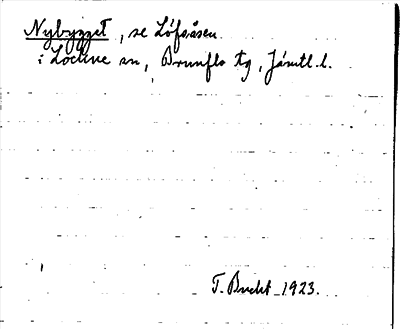 Nybygget, se Löfsåsen
i Lockne sn, Brunflo tg, Jämtl. l.
T. Bucht 1923.